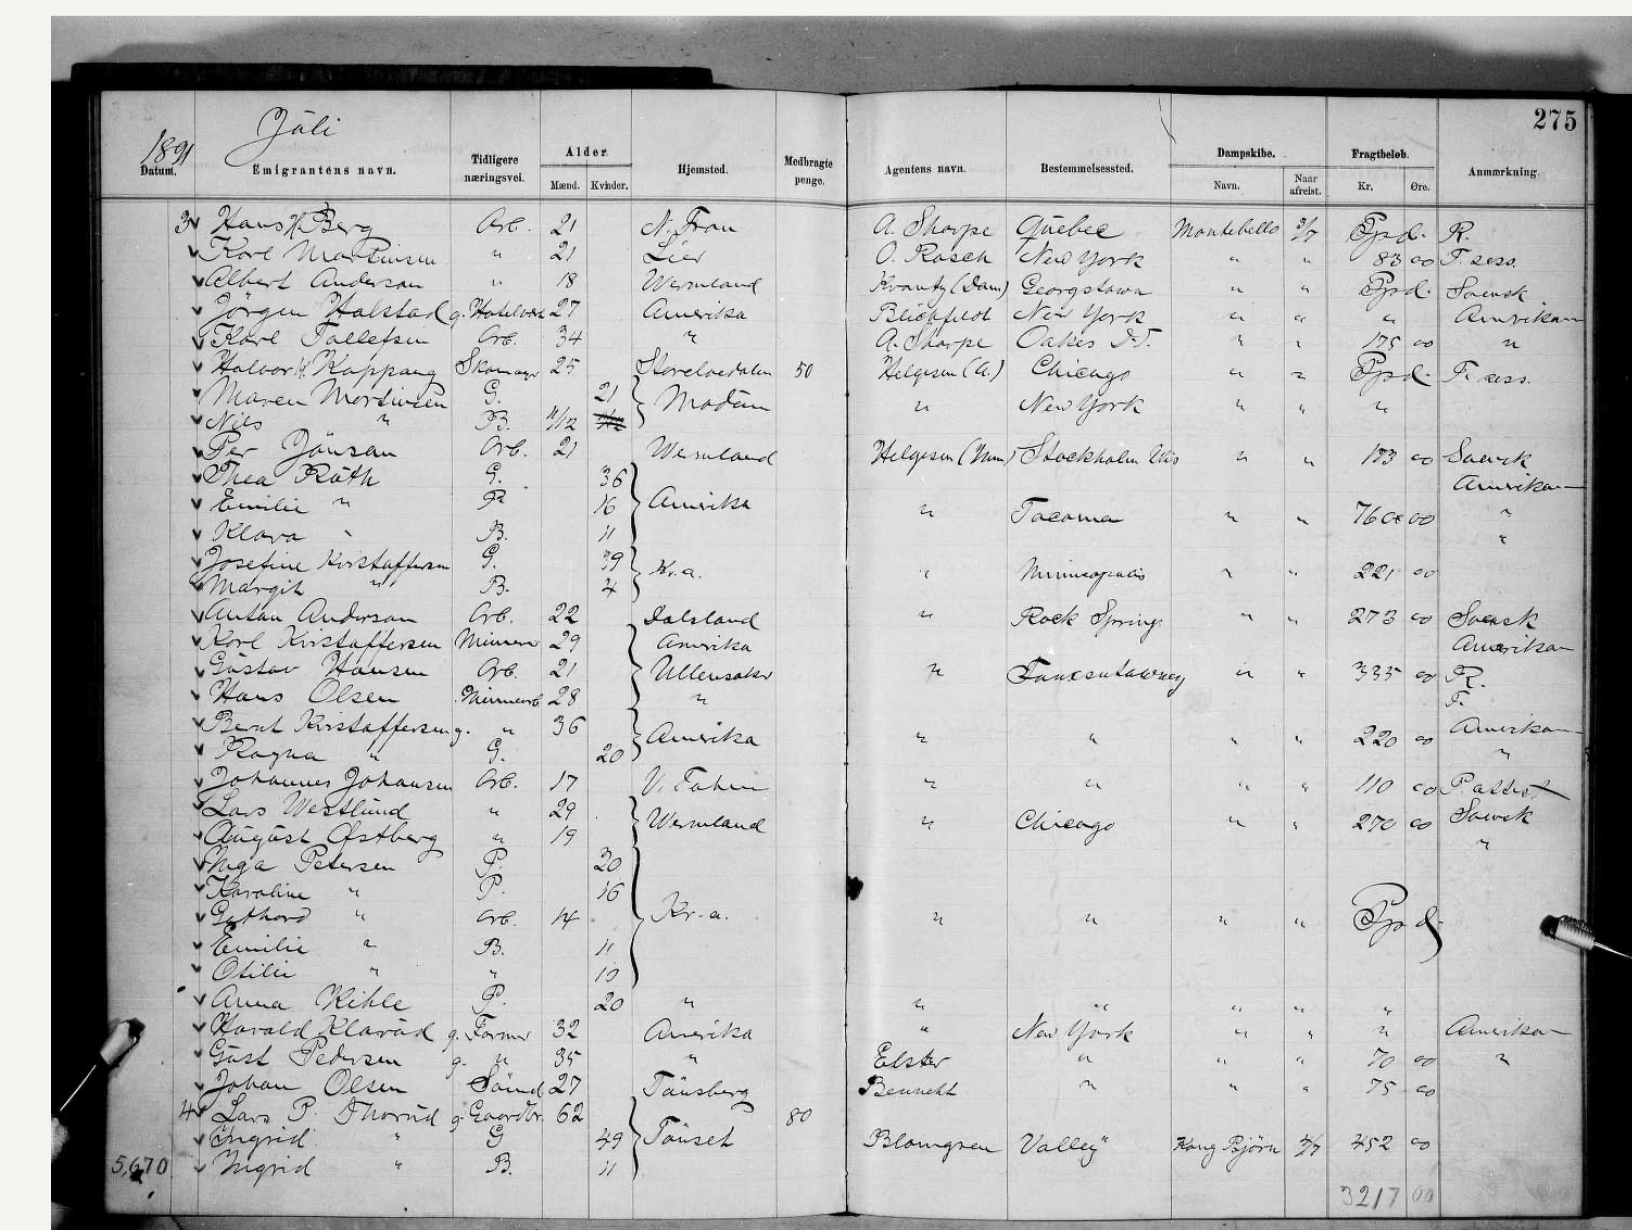 275
Juli
1891
Datum. Emigrantens navn. Tidligere næringsvei. Alder. Mænd. Kvinder. Hjemsted. Medbragte penge. Agentens navn. Bestemmelsessted. Dampskibe. Navn. Naar afreist. Fragtbeløb. Kr. Øre. Anmærkning.
3 Hans H. Berg Arb. 21 N. Fron A. Sharpe Quebec Montebello 3/7 Ppd. R.
Karl Martinsen " 21 Lier O. Rasch New York " " 83 00 F. sess.
Albert Anderson " 18 Wermland (Dam) Georgstown " " Ppd. Svensk
Jörgen Halstad g. 27 Amerika New York " " " Amerikan
Karl Tollefsen Arb. 34 " A. Sharpe Oakes " " 175 00 "
Halvor H. Koppang Skomager 25 Storelvedalen 50 Helgesen (A.) Chicago " " Ppd. F. sess.
Maren Mortinsen G. 21 Modum " New York " " "
Nils " B. 4/12
Per Jönsan Arb. 21 Wermland Helgesen Stockholm Wis " " 173 00 Svensk
Thea Roth G. 36 Amerika " Tacoma " " 760 00 Amerikan
Emilie " P. 16 "
Klara " B. 11 "
Josefine Kristoffersen G. 39 Kr.a. " Minneapolis " " 221 00
Margit " B. 4
Anton Anderson Arb. 22 Dalsland " Rock Spring " " 273 00 Svensk
Karl Kristoffersen Minearb 29 Amerika Amerikan
Gustav Hansen Arb. 21 Ullensaker " " " 335 00 R.
Hans Olsen Minearb 28 " F.
Bernt Kristoffersen g. " 36 Amerika " " " " 220 00 Amerikan
Ragna " G. 20 "
Johannes Johansen Arb. 17 " " " " 110 00
Lars Westlund " 29 Wermland " Chicago " " 270 00 Svensk
August Østberg " 19 "
Inga Petersen P. 20 Kr.a. " " " " Ppd
Karoline " P. 16
Gothard " Arb. 14
Emilie " B. 11
Otilie " " 10
Anna Kihle P. 20 " " " " " "
Harald Klarud g. Farmer 32 Amerika " New York " " " Amerikan
Gust Pedersen g. " 35 " Elster " " " 70 00 "
Johan Olsen Sömd 27 Tönsberg Bennett " " " 75 00
4 Lars P. Thorud g. Gaardbr. 62 Tönset 80 Blomgren Valley " Kong Björn 4/7 452 00
Ingrid " G 49
5,670 Ingrid " B. 11
3217 00